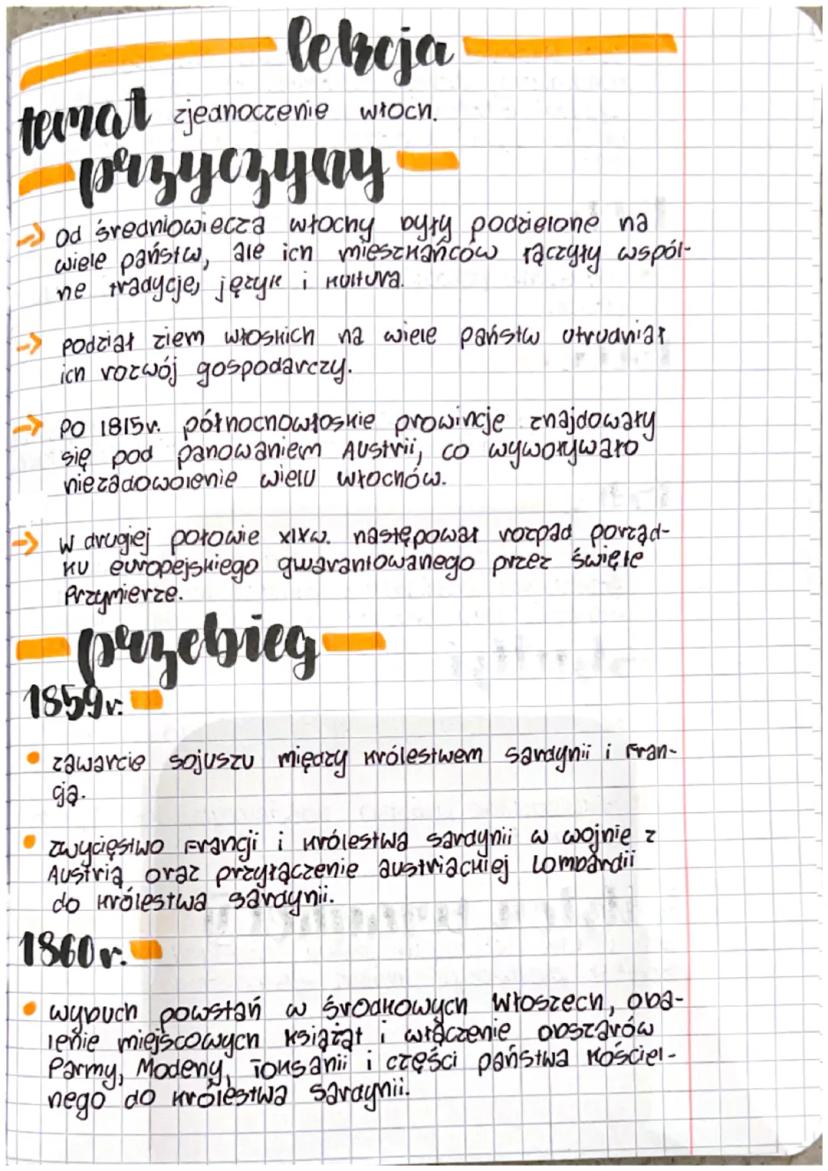 lekcja
temat zjednoczenie włoch.
przyczyny
→ Od średniowiecza włochy były podzielone na
wiele państw, ale ich mieszkańców łączyły wspól-
ne tradycje, język i kultura.
→ podział ziem włoskich na wiele państw utrudniał
ich rozwój gospodarczy.
→ Po 1815r. północnowłoskie prowincje znajdowały
się pod panowaniem Austrii, co wywoływało
niezadowolenie wielu włochów.
→ W drugiej połowie XIXw. następował rozpad porząd-
ku europejskiego gwarantowanego przez święte
Przymierze.
przebieg
1859r:
• zawarcie sojuszu między królestwem sardynii i Fran-
cją.
• zwycięstwo Francji i królestwa sardynii w wojnie z
Austrią oraz przyłączenie austriackiej Lombardii
do królestwa sardynii.
1860r.
• wybuch powstań w środkowych Włoszech, oba-
lenie miejscowych książąt i włączenie obszarów
Parmy, Modeny, Toksanii i części państwa kościel-
nego do królestwa sardynii.